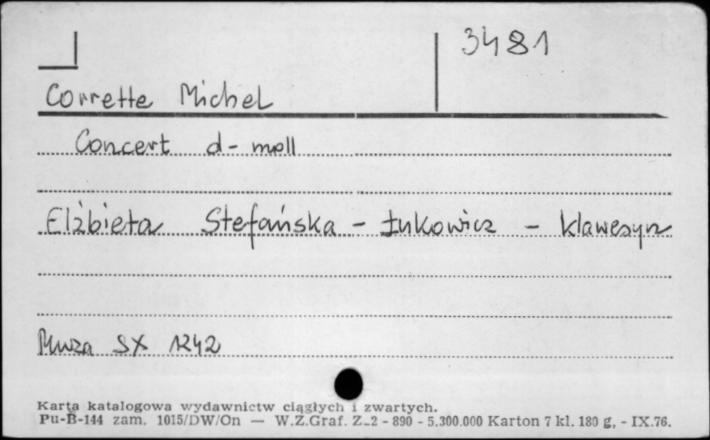 3481
Corrette Michel
Concert d-moll
Elżbieta Stefańska - Łukowicz - klawesyn
Muza SX 1242
Karta katalogowa wydawnictw ciągłych i zwartych.
Pu-B-144 zam. 1015/DW/On — W.Z.Graf. Z-2 - 890 - 5.300.000 Karton 7 kl. 180 g, - IX.76.